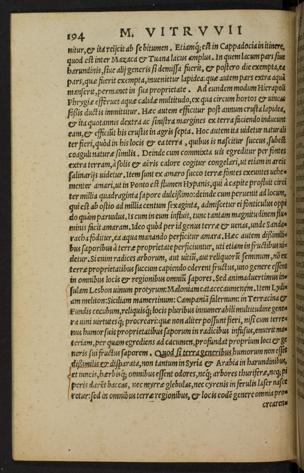 194 M. VITRVVII
nitur, & ita reijcit ab se bitumen. Etiamq́; est in Cappadocia in itinere,
quod est inter Mazaca & Tuana lacus amplus. In quem lacum pars siue
harundinis, siue alij generis si demissa fuerit, & postero die exempta, ea
pars, quæ fuerit exempta, inuenitur lapidea: quæ autem pars extra aquā
manserit, permanet in sua proprietate. Ad eundem modum Hierapoli
Phrygiæ efferuet aquæ calidæ multitudo, ex qua circum hortos & uineas
fossis ductis immittitur. Hæc autem efficitur post annum crusta lapidea,
& ita quotannis dextra ac sinistra margines ex terra faciendo inducunt
eam, & efficiũt his crustis in agris septa. Hoc autem ita uidetur naturali
ter fieri, quòd in his locis & ea terra, quibus is nascitur succus, subest
coaguli naturæ similis. Deinde cum commixta uis egreditur per fontes
extra terram, à solis & aëris calore cogitur congelari, ut etiam in areis
salinarijs uidetur. Item sunt ex amaro succo terræ fontes exeuntes uehe-
menter amari, ut in Ponto est flumen Hypanis, qui à capite profluit circi
ter millia quadraginta sapore dulcissimo: deinde cum peruenit ad locum,
qui est ab ostio ad millia centum sexaginta, admiscetur ei fonticulus oppi
dò quàm paruulus. Is cum in eum influit, tunc tantam magnitudinem flu-
minis facit amaram. Ideo quòd per id genus terræ & uenas, unde Sanda-
racha foditur, ea aqua manando perficitur amara. Hæc autem dissimili-
bus saporibus à terræ proprietate perficiuntur, uti etiam in fructibus ui-
detur. Si enim radices arborum, aut uitiũ, aut reliquorũ seminum, nō ex
terræ proprietatibus succum capiendo ederent fructus, uno genere essent
in omnibus locis & regionibus omniũ sapores. Sed animaduertimus in-
sulam Lesbon uinum protyrum: Mæoniam catacecaumenitem. Item Lydi
am meliton: Siciliam mamertinum: Campaniā falernum: in Terracina &
Fundis cæcubum, reliquisq́; locis pluribus innumerabili multitudine gene-
ra uini uirtutesq́; procreari: quæ non aliter possunt fieri, nisi cum terre-
nus humor suis proprietatibus saporum in radicibus infusus, enutrit ma-
teriam, per quam egrediens ad cacumen, profundat proprium loci & ge-
neris sui fructus saporem. Quòd si terra generibus humorum non esset
dissimilis & disparata, non tantum in Syria & Arabia in harundinibus,
et iuncis, herbisq́; omnibus essent odores, neq́; arbores thuriferæ, neq́; pi
peris darēt baccas, nec myrræ glebulas, nec cyrenis in ferulis laser nasce
retur: sed in omnibus terræ regionibus, & locis eodē genere omnia pro-
crearen-